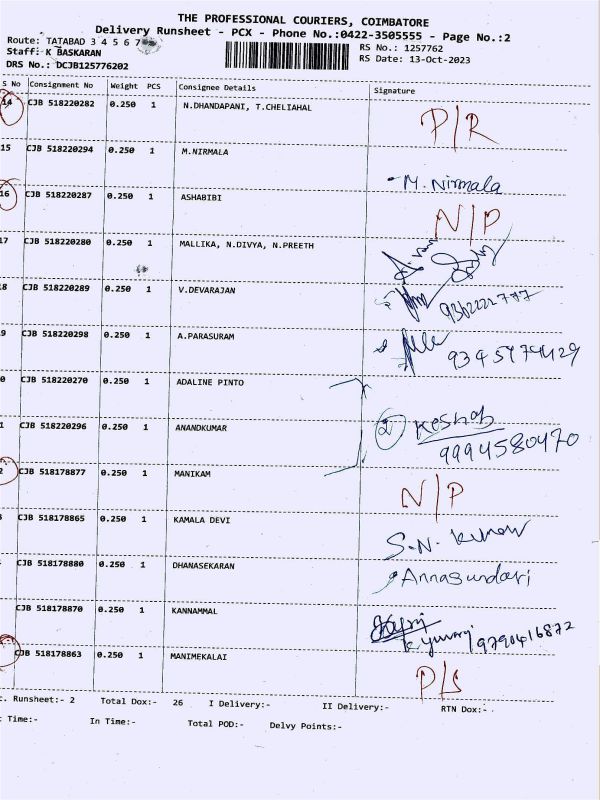 THE PROFESSIONAL COURIERS, COIMBATORE
Delivery Runsheet - PCX - Phone No.:0422-3505555 - Page No.:2
Route: TATABAD 3 4 5 6 7
RS No.: 1257762
Staff: K BASKARAN
RS Date: 13-Oct-2023
DRS No.: DCJB125776202
S No Consignment No Weight PCS Consignee Details Signature
14 CJB 518220282 0.250 1 N.DHANDAPANI, T.CHELIAHAL P/R
15 CJB 518220294 0.250 1 M.NIRMALA M. Nirmala
16 CJB 518220287 0.250 1 ASHABIBI N/P
17 CJB 518220280 0.250 1 MALLIKA, N.DIVYA, N.PREETH
8 CJB 518220289 0.250 1 V.DEVARAJAN
9 CJB 518220298 0.250 1 A.PARASURAM
0 CJB 518220270 0.250 1 ADALINE PINTO
1 CJB 518220296 0.250 1 ANANDKUMAR 2 Keshab
9994580470
2 CJB 518178877 0.250 1 MANIKAM N/P
CJB 518178865 0.250 1 KAMALA DEVI S.N.
CJB 518178880 0.250 1 DHANASEKARAN Annasundari
CJB 518178870 0.250 1 KANNAMMAL 9790416872
CJB 518178863 0.250 1 MANIMEKALAI P/S
. Runsheet:- 2 Total Dox:- 26 I Delivery:- II Delivery:- RTN Dox:-
Time:- In Time:- Total POD:- Delvy Points:-